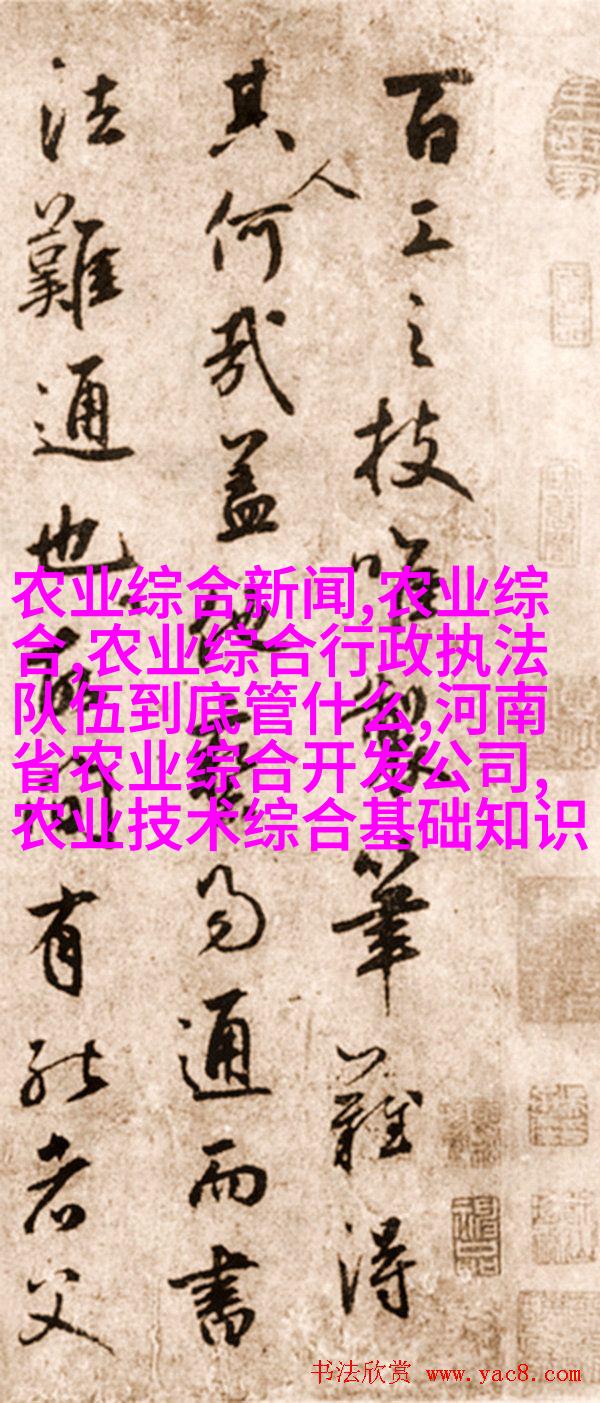 百工之技唯製筆難得
其人何哉盖他藝易通而書
法難通也有能者父
农业综合新闻,农业综
合,农业综合行政执法
队伍到底管什么,河南
省农业综合开发公司,
农业技术综合基础知识
书法欣赏 www.yac8.com